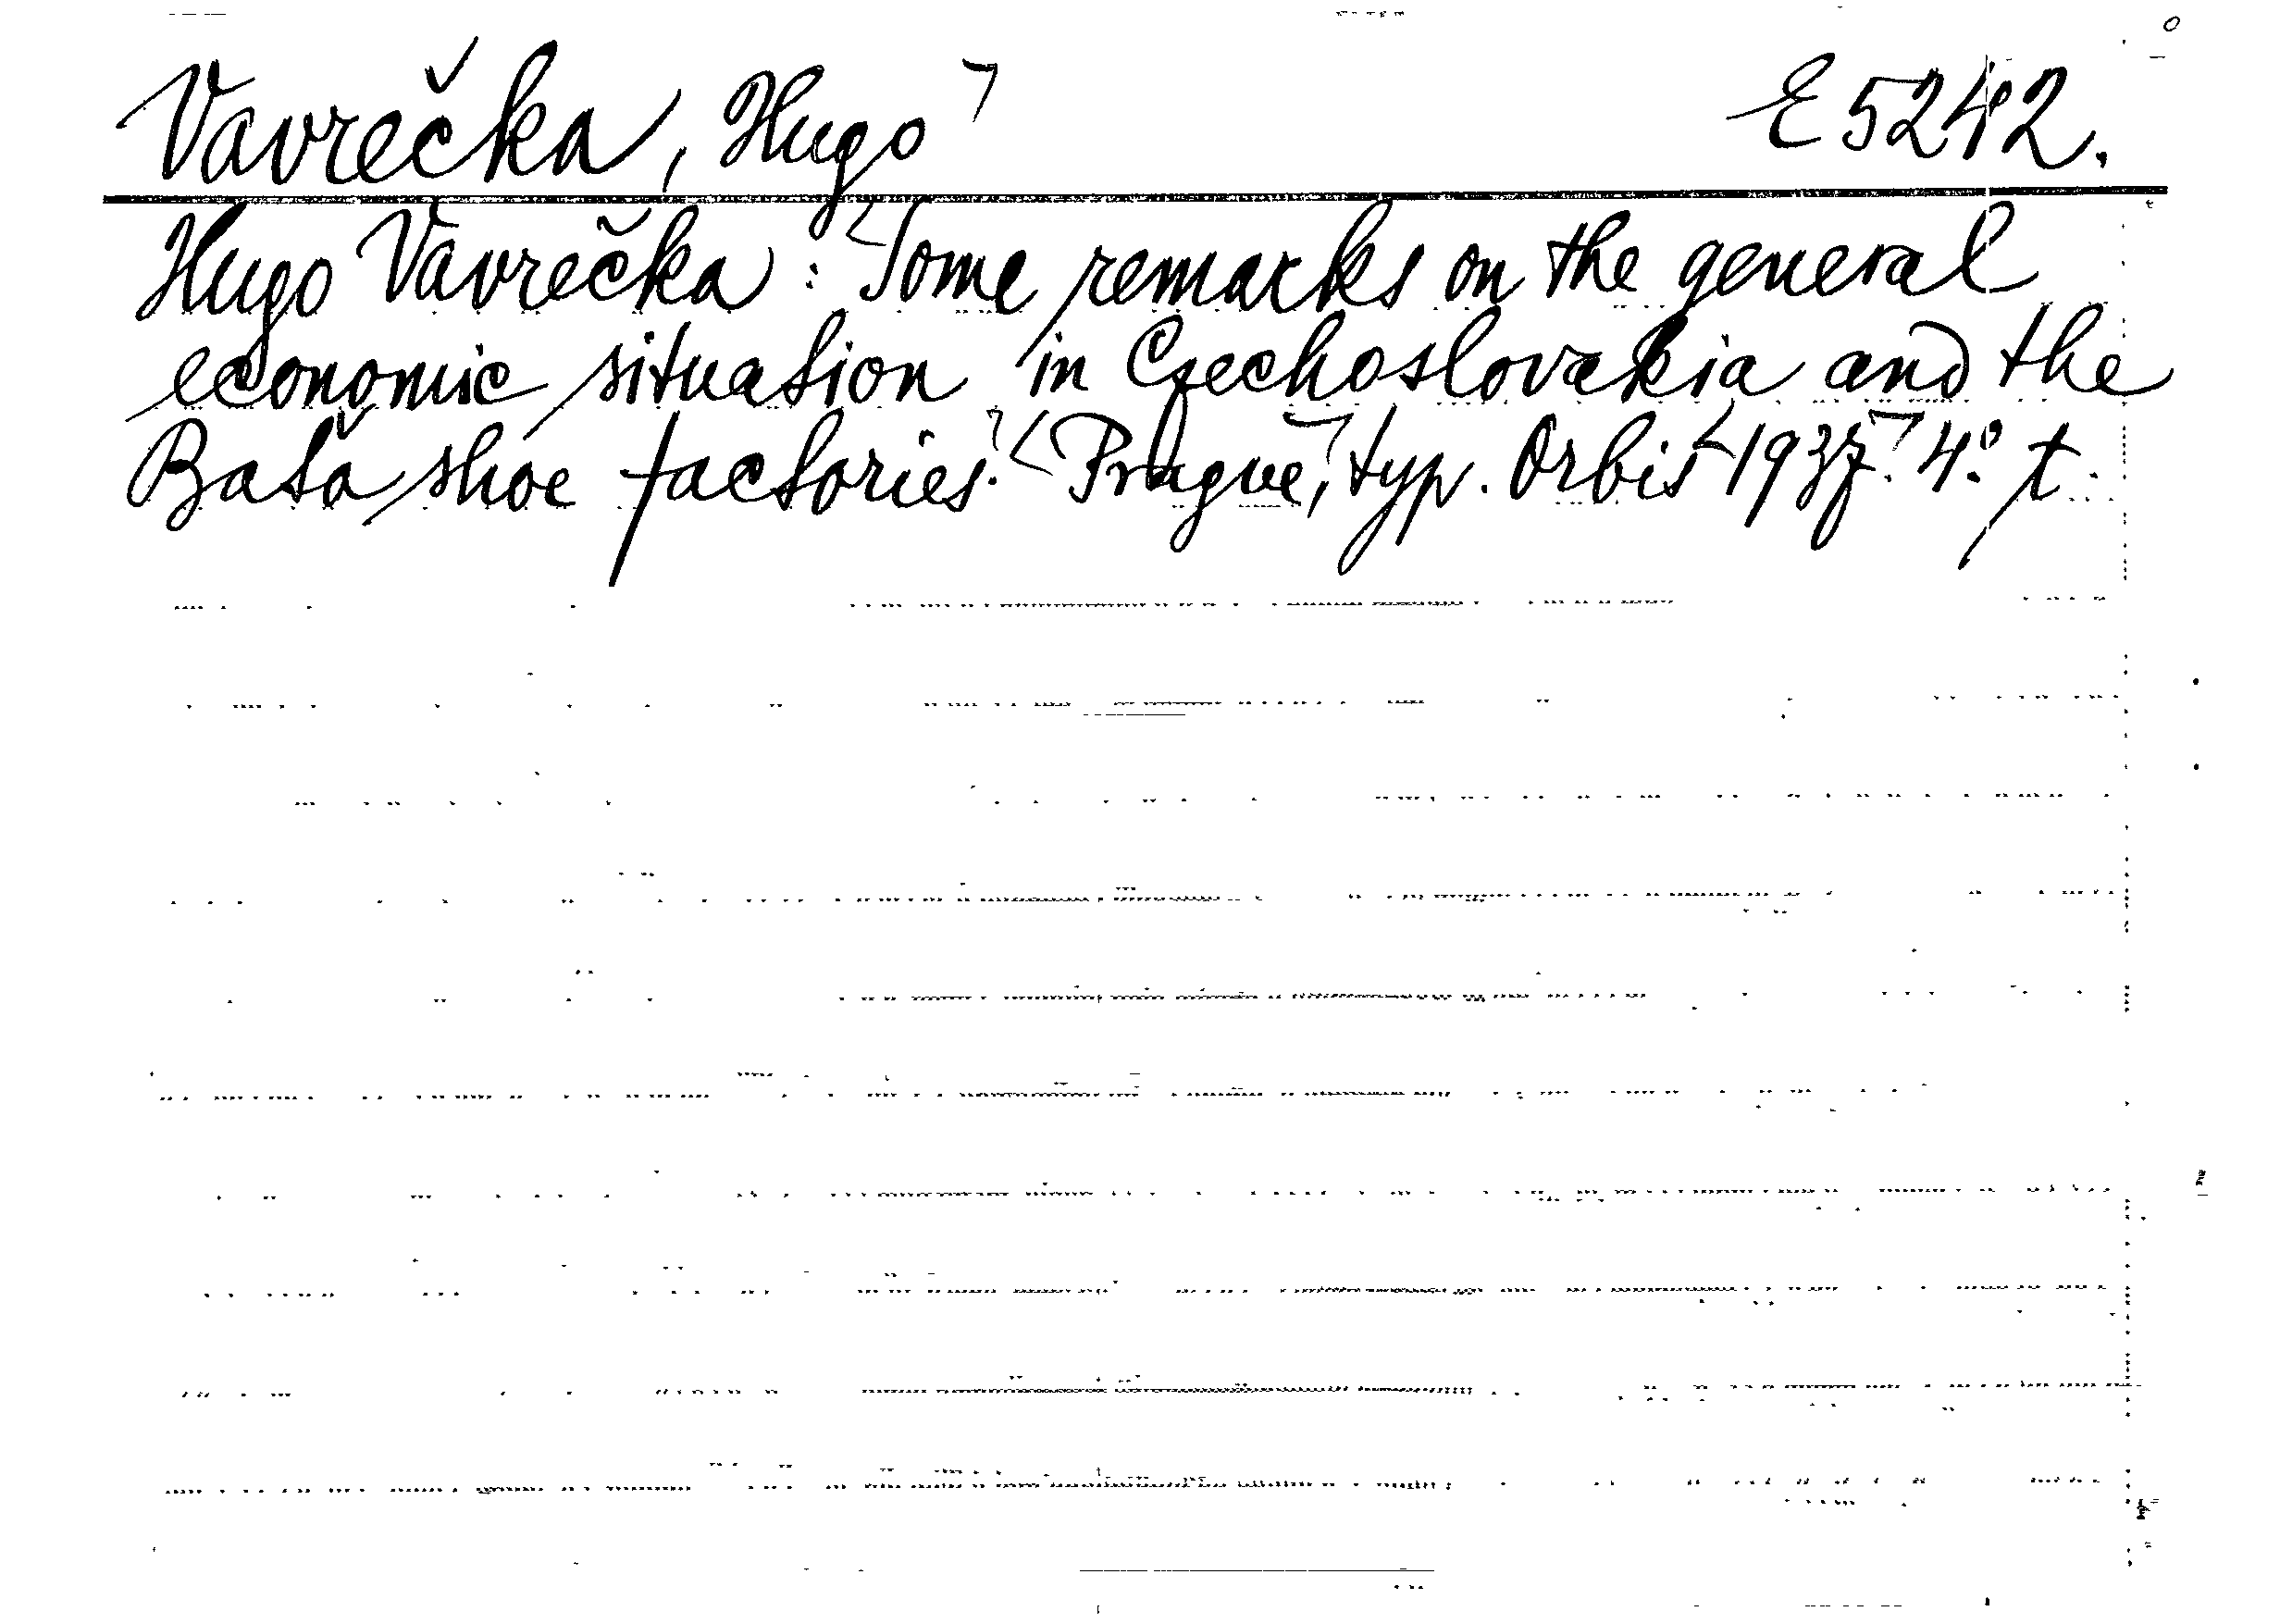 Vavrečka, Hugo E 5242.
Hugo Vavrečka: Some remarks on the general
economic situation in Czechoslovakia and the
Baťa shoe factories. Prague, typ. Orbis 1937. 4° t.